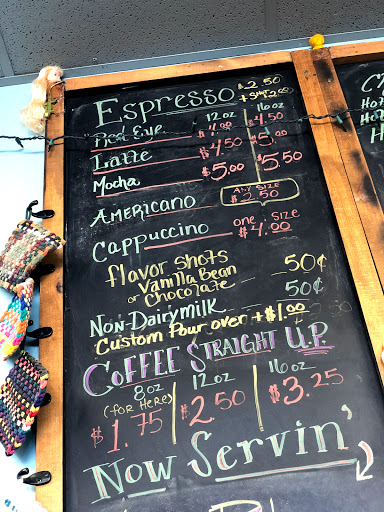 Espresso $2.50
+ SHOT 2.00
12 oz 16 oz
"Red Eye $4.00 $4.50
Latte $4.50 $5.00
Mocha $5.00 $5.50
Americano ANY SIZE $2.50
Cappuccino one size $4.00
flavor shots 50¢
Vanilla Bean
or Chocolate
Non-Dairy milk 50¢
Custom Pour over +$1.00
COFFEE STRAIGHT UP
8oz 12 oz 16 oz
(for Here)
$1.75 $2.50 $3.25
Now Servin'